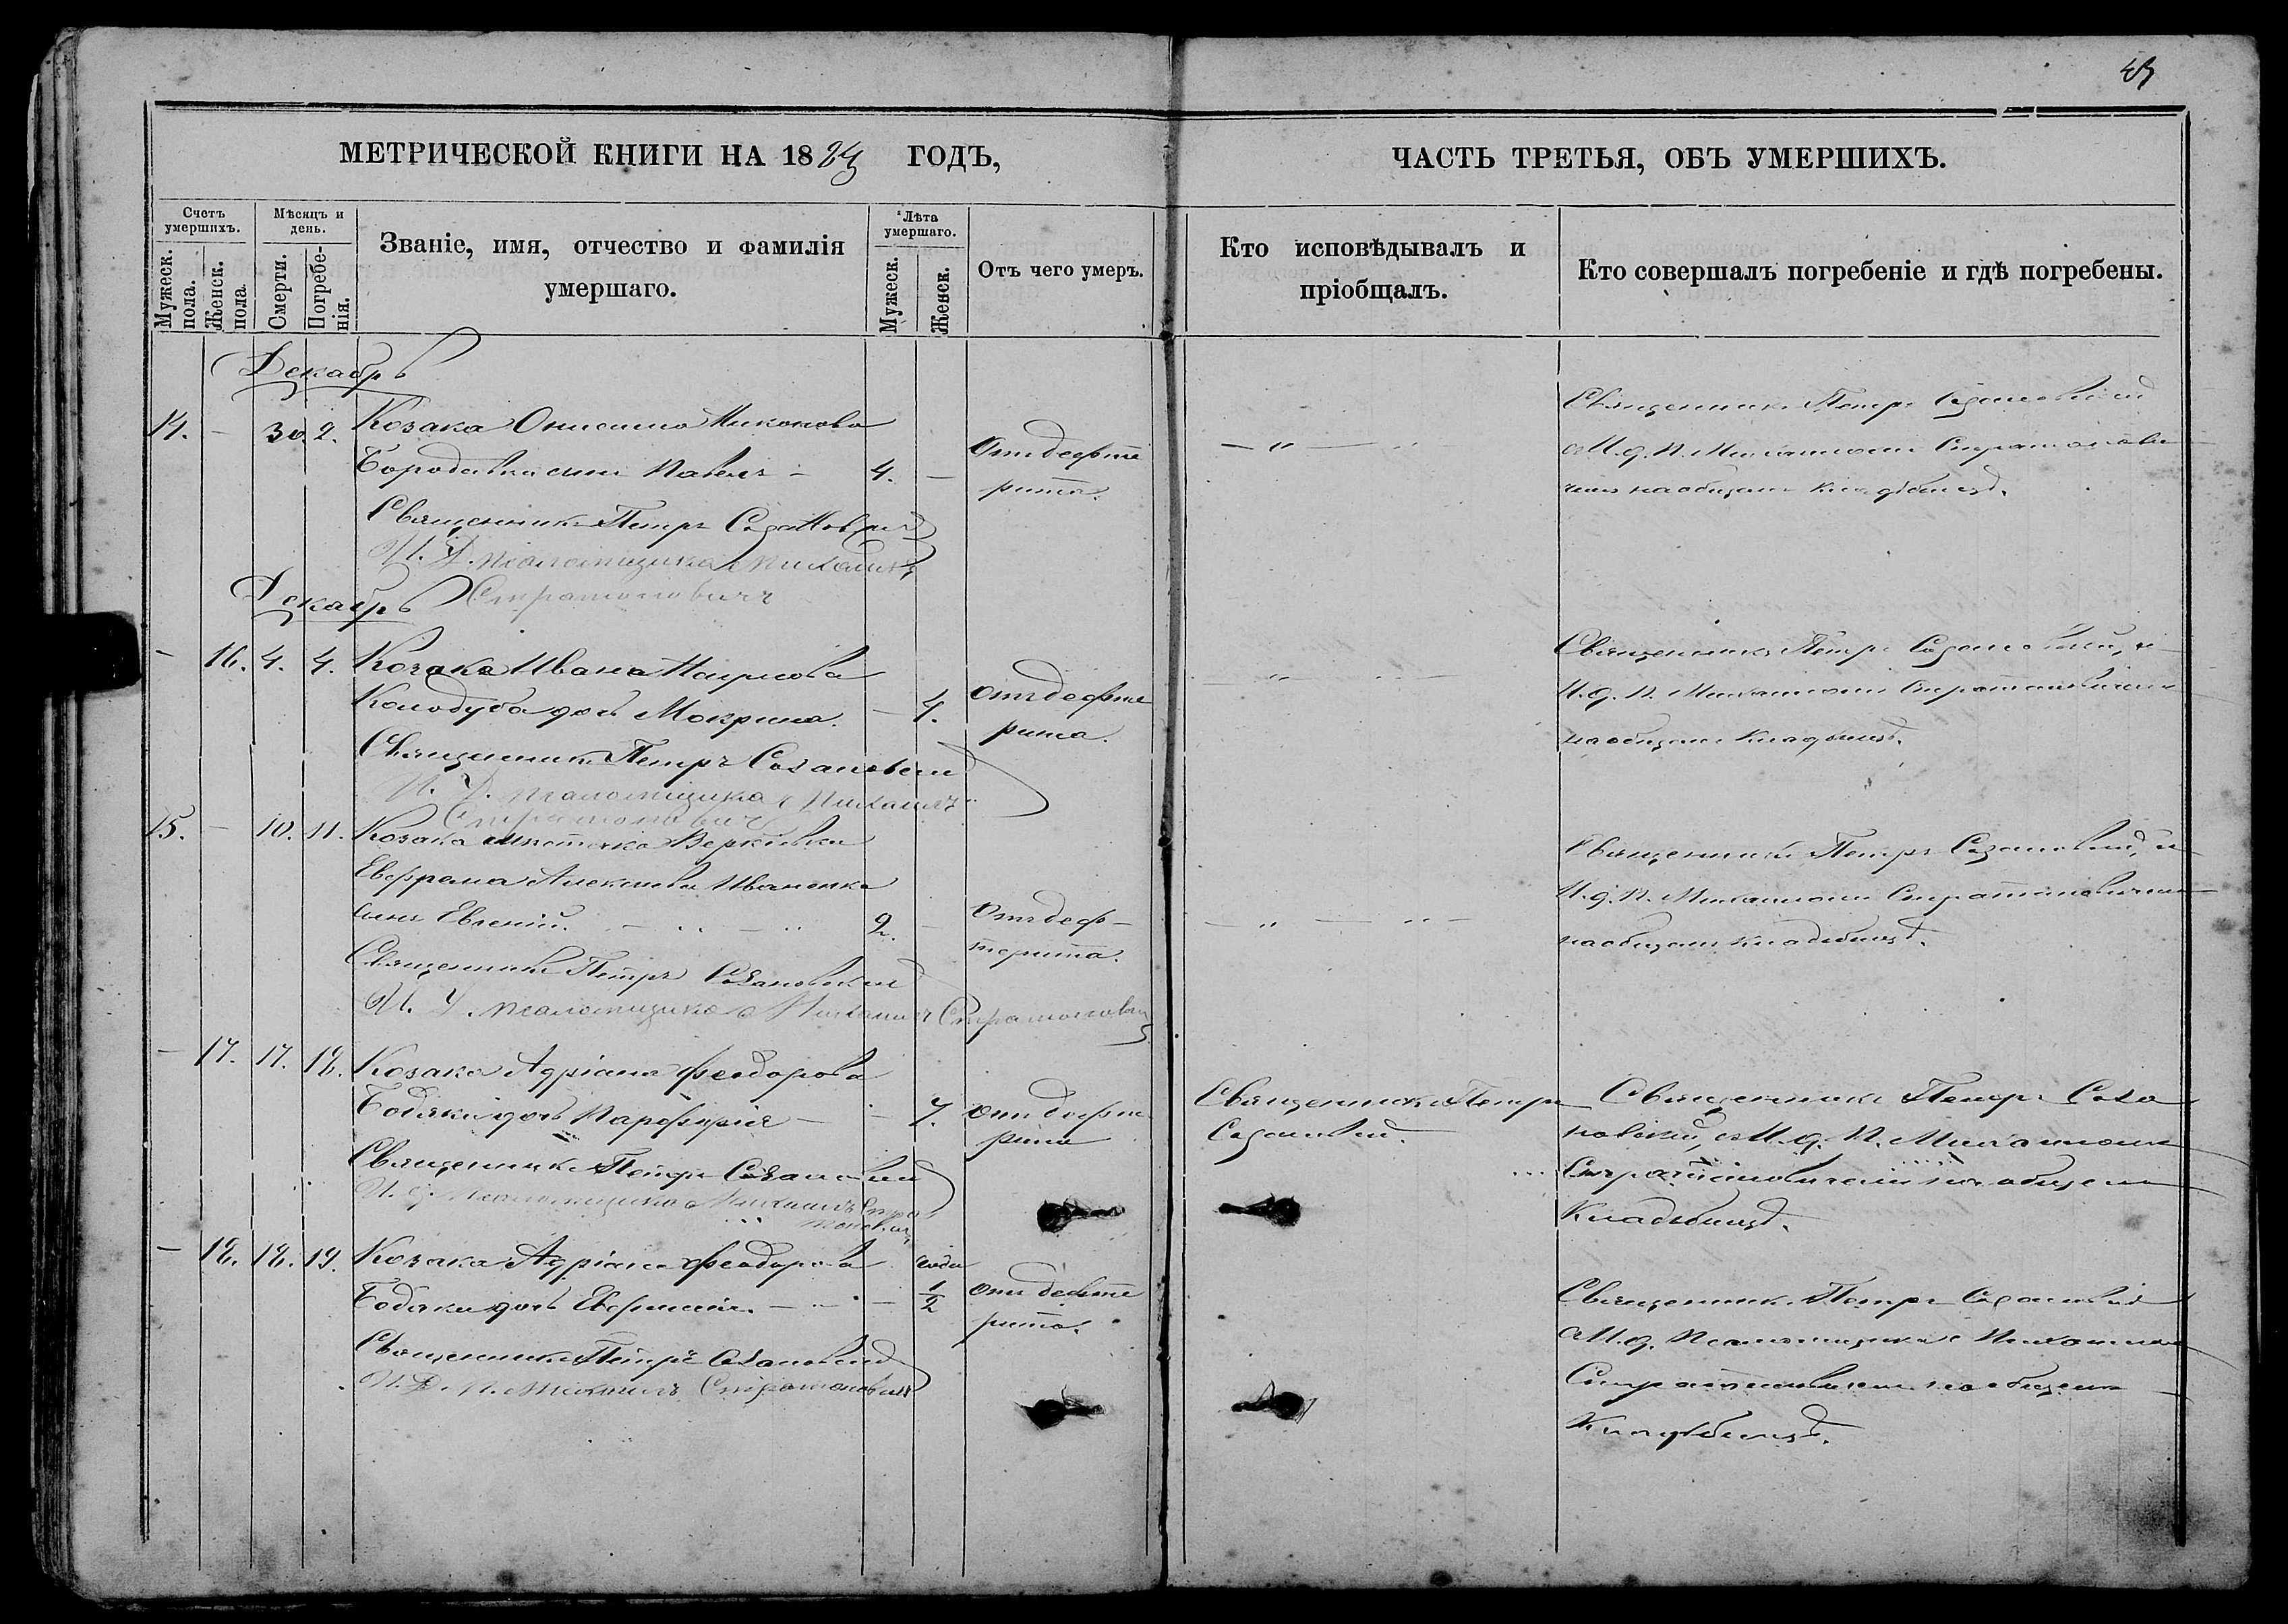 МЕТРИЧЕСКОЙ КНИГИ НА 18 ГОДЪ,
Счетъ умершихъ.
Мужеск. пола.
Женск. пола
Мѣсяцъ и день.
Смерти.
Погребенія.
Званіе, имя, отчество и фамилія
умершаго.
Лѣта умершаго.
Мужеск.
Женск.
Отъ чего умеръ.
Декабрь
14. — 30. 2. Козака Онисима Никонова
Бородавки сынъ Павелъ — 4. —
Отъ дефте
рита.
Священникъ Петръ Созановскій
И. Д. псаломщика Михаилъ
Стратоновичъ
Декабрь
— 16. 4. 4. Козака Ивана Наумова
Колодуба дочь Мокрина. — 4.
Отъ дефте
рита.
Священникъ Петръ Созановскій
И. Д. псаломщика Михаилъ
Стратоновичъ
15. — 10. 11. Козака
Евфрема Алексѣева Иваненка
сынъ Евгеній. 2. —
Отъ деф-
терита.
Священникъ Петръ Созановскій
И. Д. псаломщика Михаилъ Стратоновичъ
— 17. 17. 18. Козака Адріана Феодорова
дочь Парфирія — 7.
Отъ дефте
рита
Священникъ Петръ Созановскій
И. д. псаломщика Михаилъ Стра
тоновичъ
— 18. 18. 19. Козака Адріана Феодорова года
дочь — 1/2
Отъ дефте
рита.
Священникъ Петръ Созановскій
И. Д. П. Михаилъ Стратоновичъ
ЧАСТЬ ТРЕТЬЯ, ОБЪ УМЕРШИХЪ.
Кто исповѣдывалъ и
пріобщалъ.
Кто совершалъ погребеніе и гдѣ погребены.
— „ — „
Священникъ Петръ Созановскій
съ И. д. П. Михаиломъ Стратонови
чемъ на общемъ кладбищѣ.
— „ — „ —
Священникъ Петръ Созановскій, съ
И. д. П. Михаиломъ Стратоновичемъ
на общемъ кладбищѣ.
— „ — „ —
Священникъ Петръ Созановскій, съ
И. д. П. Михаиломъ Стратоновичемъ
на общемъ кладбищѣ.
Священникъ Петръ
Созановскій.
Священникъ Петръ Соза
новскій, съ И. д. П. Михаиломъ
Стратоновичемъ на общемъ
кладбищѣ.
Священникъ Петръ Созановскій
съ И. д. Псаломщика Михаиломъ
Стратоновичемъ на общемъ
кладбищѣ.